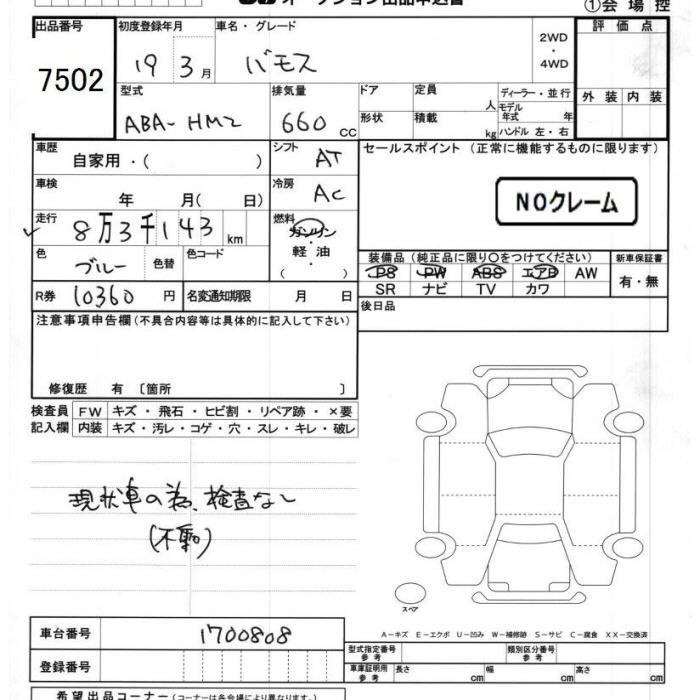 オークション出品申込書
①会場控
出品番号 初度登録年月 車名・グレード 評価点
7502 19 3月 バモス 2WD・4WD
外装 内装
型式 排気量 ドア 定員 人 ディーラー・並行
ABA-HM2 660 CC 形状 積載 kg モデル年式 年
ハンドル 左・右
車歴 自家用・( ) シフト AT セールスポイント (正常に機能するものに限ります)
車検 年 月(日) 冷房 AC
NOクレーム
走行 8万3千143km 燃料 ガソリン
軽油
( )
色 ブルー 色替 色コード
装備品(純正品に限り○をつけてください) 新車保証書
PS PW ABS エアB AW 有・無
SR ナビ TV カワ
R券 10360円 名変通知期限 月 日
後日品
注意事項申告欄(不具合内容等は具体的に記入して下さい)
修復歴 有〔箇所 〕
検査員 FW キズ・飛石・ヒビ割・リペア跡・×要
記入欄 内装 キズ・汚レ・コゲ・穴・スレ・キレ・破レ
現状車の為、検査なし
(不動)
スペア
A-キズ E-エクボ U-凹み W-補修跡 S-サビ C-腐食 XX-交換済
車台番号 1700808
型式指定番号 参考 類別区分番号 参考
登録番号
車庫証明用 参考 長さ cm 幅 cm 高さ cm
希望出品コーナー(コーナーは各会場により異なります。)